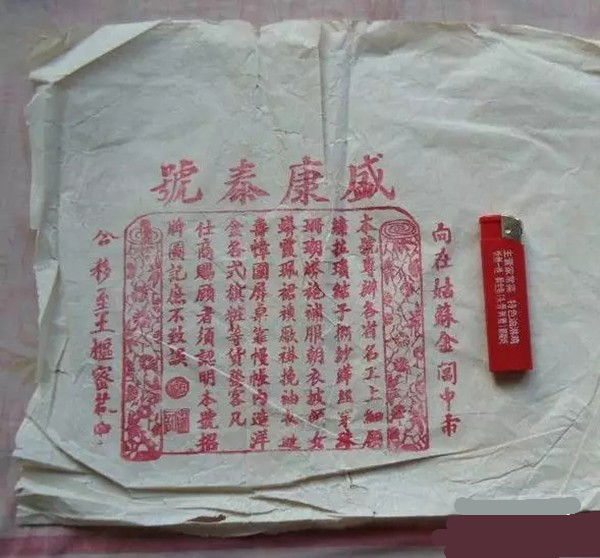 盛康泰號
向在姑蘇金閶中市
本號專辦各省 工上細顧
繡拉瑣結子衲紗 絲 珠
珊瑚 袍補服朝衣披 女
蟒霞珮裙襖 褂挽袖衣邊
壽幛圍屏桌靠幔帳內造洋
金各式 等貨發客凡
仕商賜顧者須認明本號招
牌圖記庶不致誤
今移至王樞密巷口
主营家常菜 特色油淋鸡